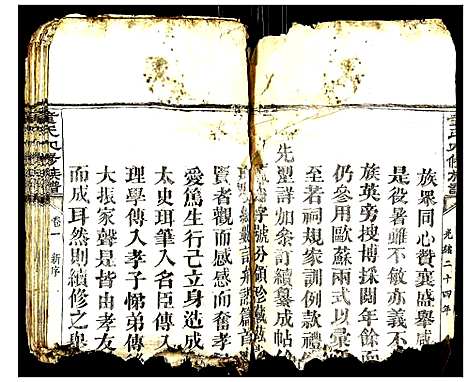 族眾同心贊襄盛舉咸
是役暑雖不敏亦義不
族英旁搜博採閱年餘而
仍參用歐蘇兩式以彙
至若祠規家訓例款禮
先塋詳加參訂續纂成帖
字號分領珍藏
賢者觀而感感而奮孝
愛篤生行己立身造成
太史珥筆入名臣傳入
理學傳入孝子悌弟傳
大振家聲是皆由孝友
而成耳然則續修之舉
光緒二十四年
氏四修族譜
卷一 新序